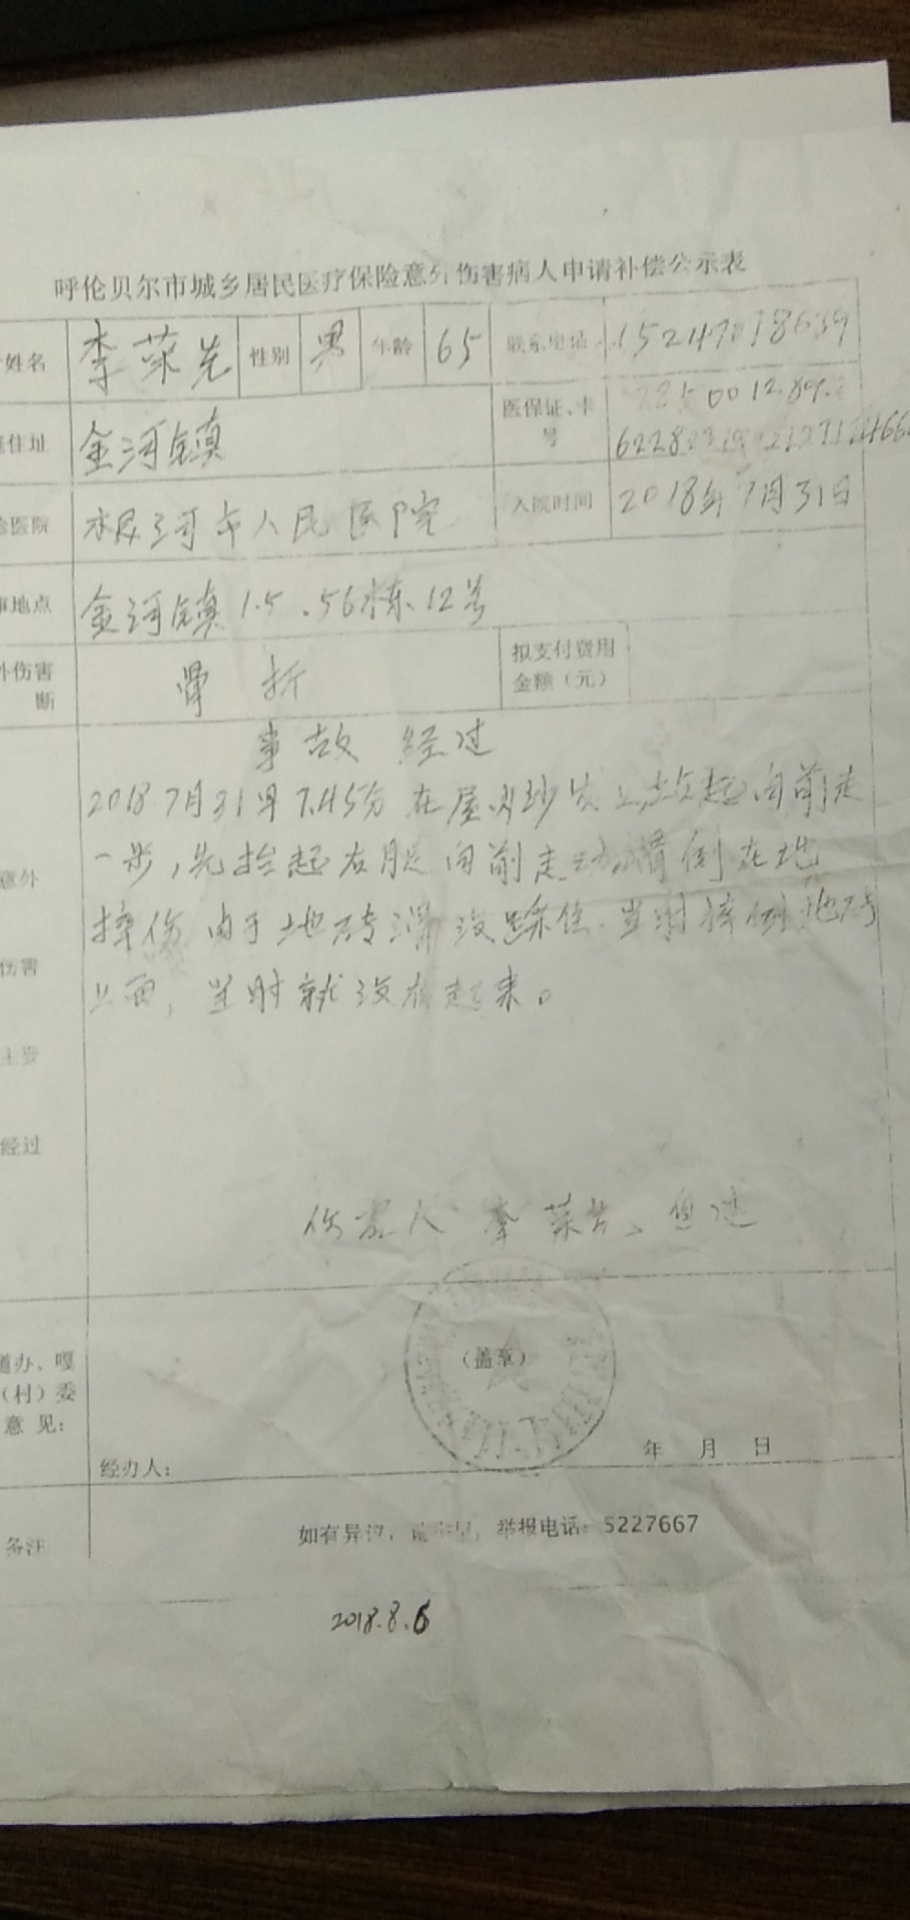 呼伦贝尔市城乡居民医疗保险意外伤害病人申请补偿公示表
姓名 李荣 性别 男 年龄 65 联系电话
住址 金河镇 医保证、卡号
医院 根河市人民医院 入院时间 2018年7月31日
地点 金河镇 1.5.56栋.12号
外伤害断 骨折 拟支付费用金额（元）
事故 经过
2018 7月31日 7.45分 在屋内沙发上 起向前走
一步，先抬起右腿向前走 滑倒在地
摔伤 由于地砖滑没踩住 当时摔倒地砖
上面，当时就没有起来。
意外
伤害
主要
经过
伤害人 李荣
道办、嘎
（村）委
意 见：
（盖章）
年 月 日
经办人：
备注 如有异议， 举报电话：5227667
2018.8.6